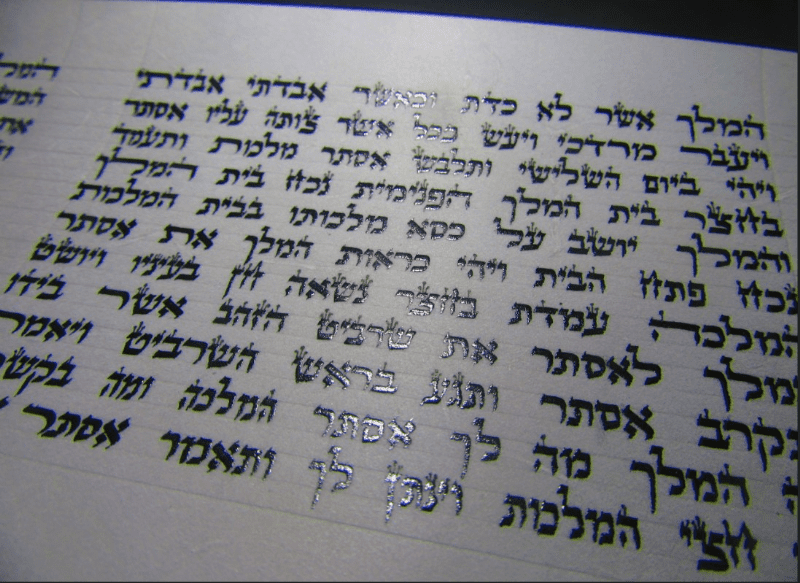 המלך אשר לא כדת וכאשר אבדתי אבדתי
ויעבר מרדכי ויעש ככל אשר צותה עליו אסתר
ויהי ביום השלישי ותלבש אסתר מלכות ותעמד
בחצר בית המלך הפנימית נכח בית המלך
והמלך יושב על כסא מלכותו בבית המלכות
נכח פתח הבית ויהי כראות המלך את אסתר
המלכה עמדת בחצר נשאה חן בעיניו ויושט
מלך לאסתר את שרביט הזהב אשר בידו
קרב אסתר ותגע בראש השרביט ויאמר
המלך מה לך אסתר המלכה ומה בקש
חצי המלכות וינתן לך ותאמר אסתר